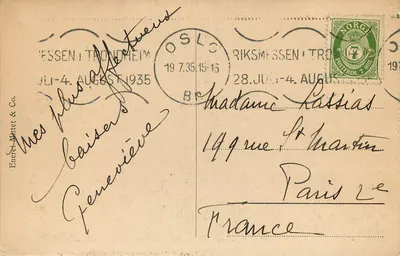 RIKSMESSEN I TRONDHEIM
28. JULI-4. AUGUST 1935
OSLO
19.7.35.15-16
Br
NORGE
7
Mes plus affectueux
baisers
Geneviève
Madame Lassias
199 rue St Martin
Paris 2e
France
Eneret Mittet & Co.